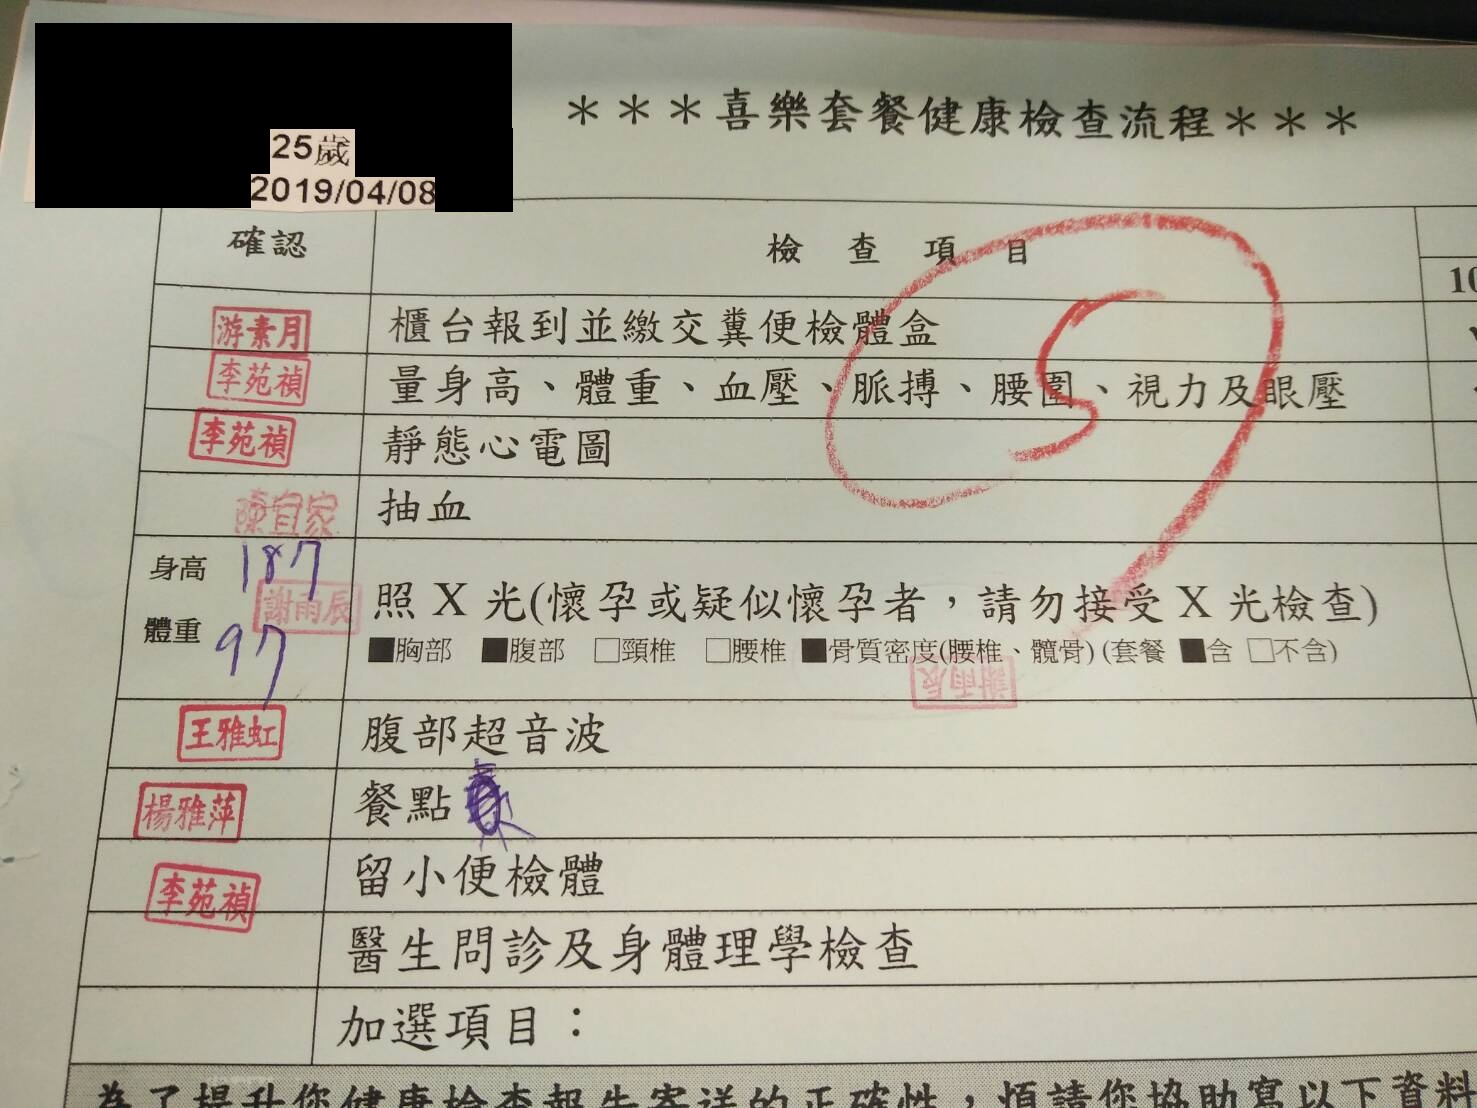 25歲
2019/04/08
＊＊＊喜樂套餐健康檢查流程＊＊＊
確認 檢查項目
10
游素月 櫃台報到並繳交糞便檢體盒
李苑禎 量身高、體重、血壓、脈搏、腰圍、視力及眼壓
李苑禎 靜態心電圖
陳宜家 抽血
身高 187
謝雨辰 照 X 光(懷孕或疑似懷孕者，請勿接受 X 光檢查)
體重 97
■胸部 ■腹部 □頸椎 □腰椎 ■骨質密度(腰椎、髖骨) (套餐 ■含 □不含)
謝雨辰
王雅虹 腹部超音波
楊雅萍 餐點
李苑禎 留小便檢體
醫生問診及身體理學檢查
加選項目：
為了提升您健康檢查報告寄送的正確性，煩請您協助寫以下資料